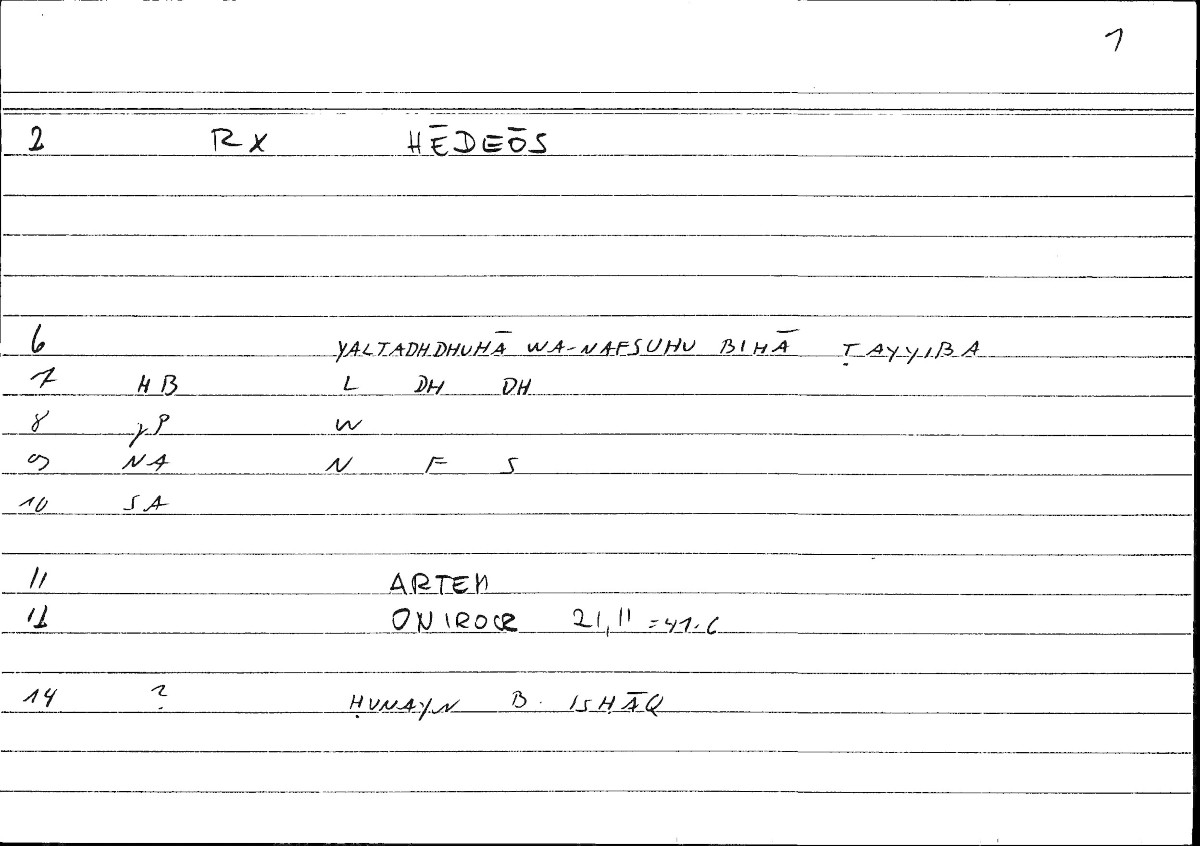 1
2 RX HĒDEŌS
6 YALTADHDHUHĀ WA-NAFSUHU BIHĀ ṬAYYIBA
7 HB L DH DH
8 W
9 NA N F S
10 SA
11 ARTEM
12 ONIROCR 21,11 = 41.6
14 ? ḤUNAYN B. ISḤĀQ